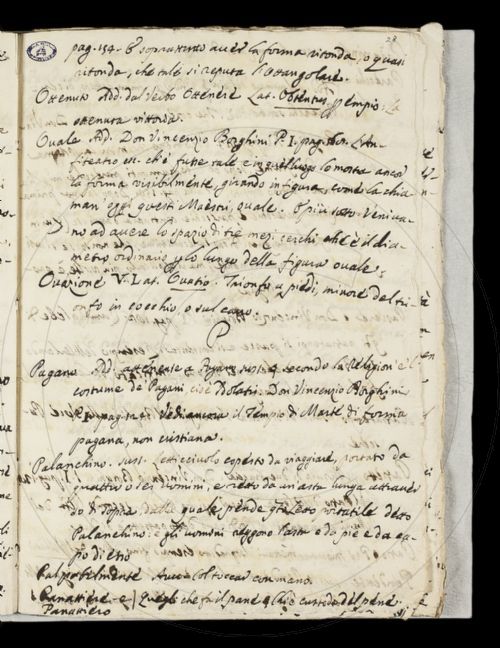 28
pag. 154. E soprattutto aver la forma ritonda, o quasi
ritonda, che tale si reputa l'ottangolare.
Ottenuto Add. dal Verbo Ottenere Lat. Obtentus. p. empio: la
ottenuta vittoria.
Ovale Ad. Don Vincenzio Borghini P. I. pag. Anfi-
teatro ch'e' fusse tale e in quel luogo lo mostra ancor
la forma visibilmente, girando in figura, come la chia-
man oggi questi Maestri, ovale. E più sotto. Veniva-
no ad avere lo spazio di tre mezi cerchi che è il dia-
metro ordinario p lo lungo della figura ovale;
Ovazione V. Lat. Ovatio. Trionfo a piedi, minore del tri-
onfo in cocchio, o sul carro.
P
Pagano Ad. attenente a Pagani sust. e secondo la Religion e 'l
costume de Pagani, cioè Idolatri. Don Vincenzio Borghini
P. I. pag. Vedi ancora il Tempio di Marte di forma
pagana, non cristiana.
Palanchino. sust. Letticciuolo coperto da viaggiare, portato da
quattro o sei uomini, e retto da un'asta lunga attraver-
so di sopra, dalla quale pende gto letto portatile detto
Palanchino: e gli uomini reggono l'asta e da pie e da ca-
po di etto
Palpabilmente Avv. Col toccar con mano.
Panattiere - e Quegli che fa il pane e Chi è custode del pane.
Panattiero